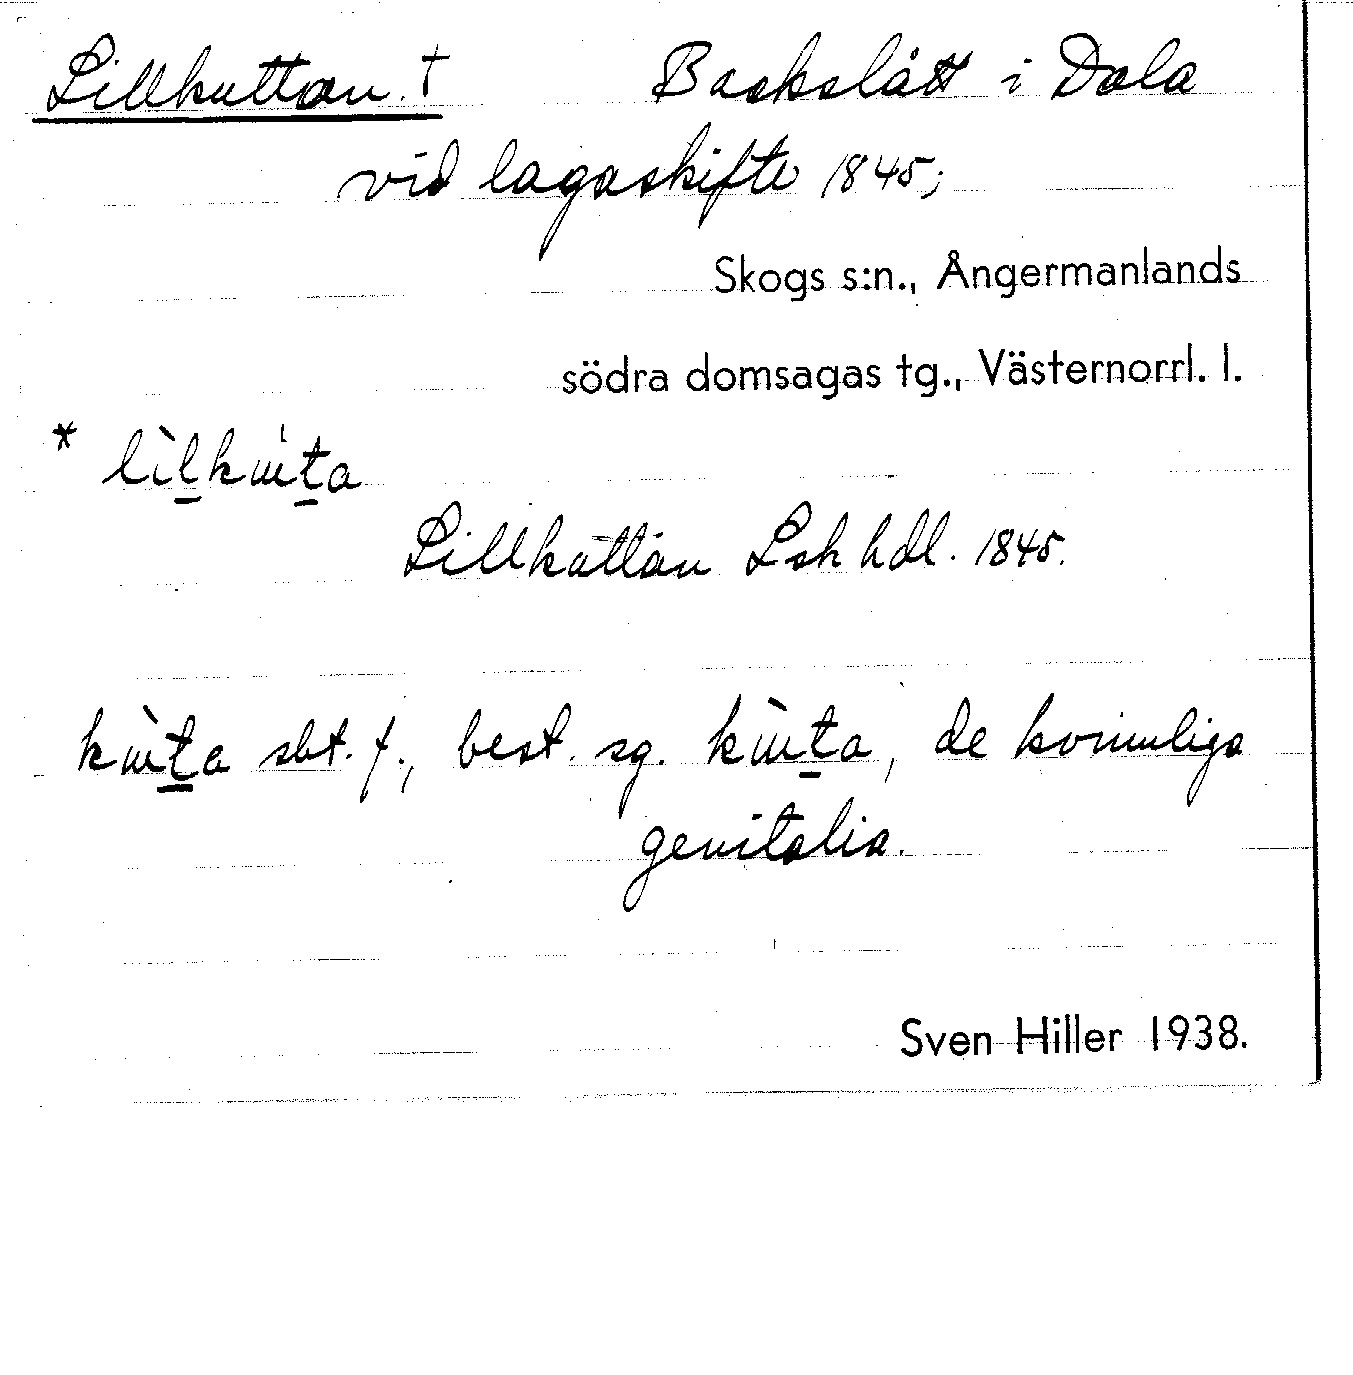 Lillkuttan. † Backslått i Dala
vid lagaskifte 1845;
Skogs s:n., Ångermanlands
södra domsagas tg., Västernorrl. l.
* lìlkuta
Lillkuttan Lsk hdl. 1845.
kùta sbt. f., best. sg. kùta, de kvinnliga
genitalia.
Sven Hiller 1938.